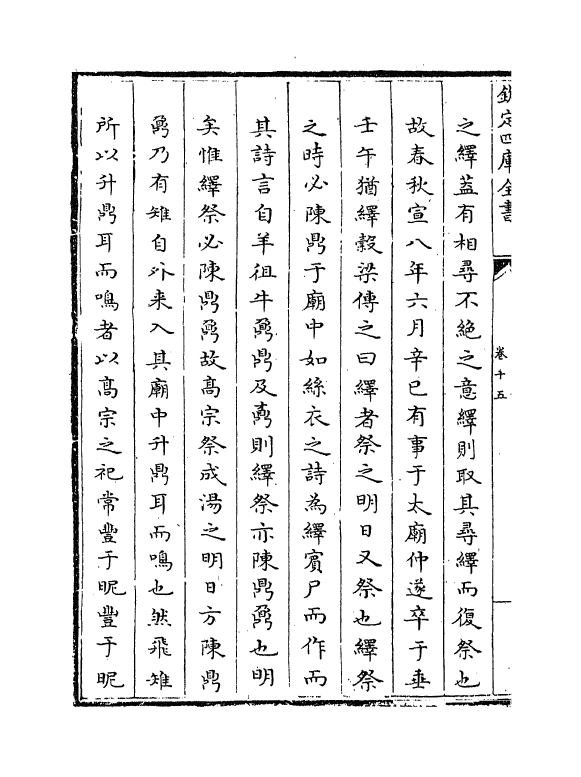 欽定四庫全書
卷十五
之繹蓋有相尋不絶之意繹則取其尋繹而復祭也
故春秋宣八年六月辛巳有事于太廟仲遂卒于垂
壬午猶繹穀梁傳之曰繹者祭之明日又祭也繹祭
之時必陳鼎于廟中如絲衣之詩為繹賓尸而作而
其詩言自羊徂牛鼐鼎及鼒則繹祭亦陳鼎鼐也明
矣惟繹祭必陳鼎鼐故髙宗祭成湯之明日方陳鼎
鼐乃有雉自外来入其廟中升鼎耳而鳴也然飛雉
所以升鼎耳而鳴者以髙宗之祀常豐于昵豐于昵